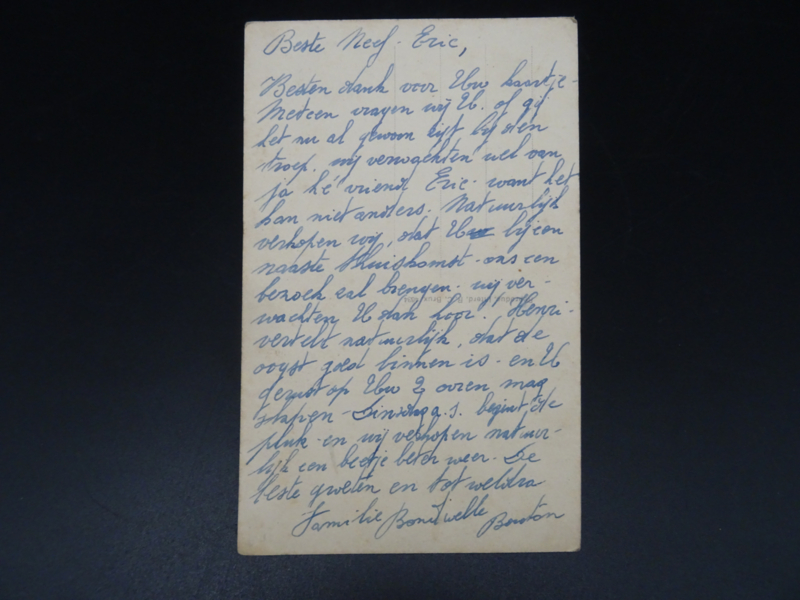 Beste Neef - Eric,
Besten dank voor Uw kaartje -
Meteen vragen wij U. of gij
het nu al gewoon zijt bij den
troep. wij verwachten wel van
ja hé vriend Eric - want het
kan niet anders. Natuurlijk
verhopen wij, dat U bij een
naaste thuiskomst - ons een
bezoek zal brengen - wij ver-
wachten U dan hoor! Henri -
vertelt natuurlijk, dat de
oogst goed binnen is - en U
gerust op Uw 2 ooren mag
slapen - Dinsdag a.s. begint de
pluk - en wij verhopen natuur-
lijk een beetje beter weer. De
beste groeten en tot weldra
Familie